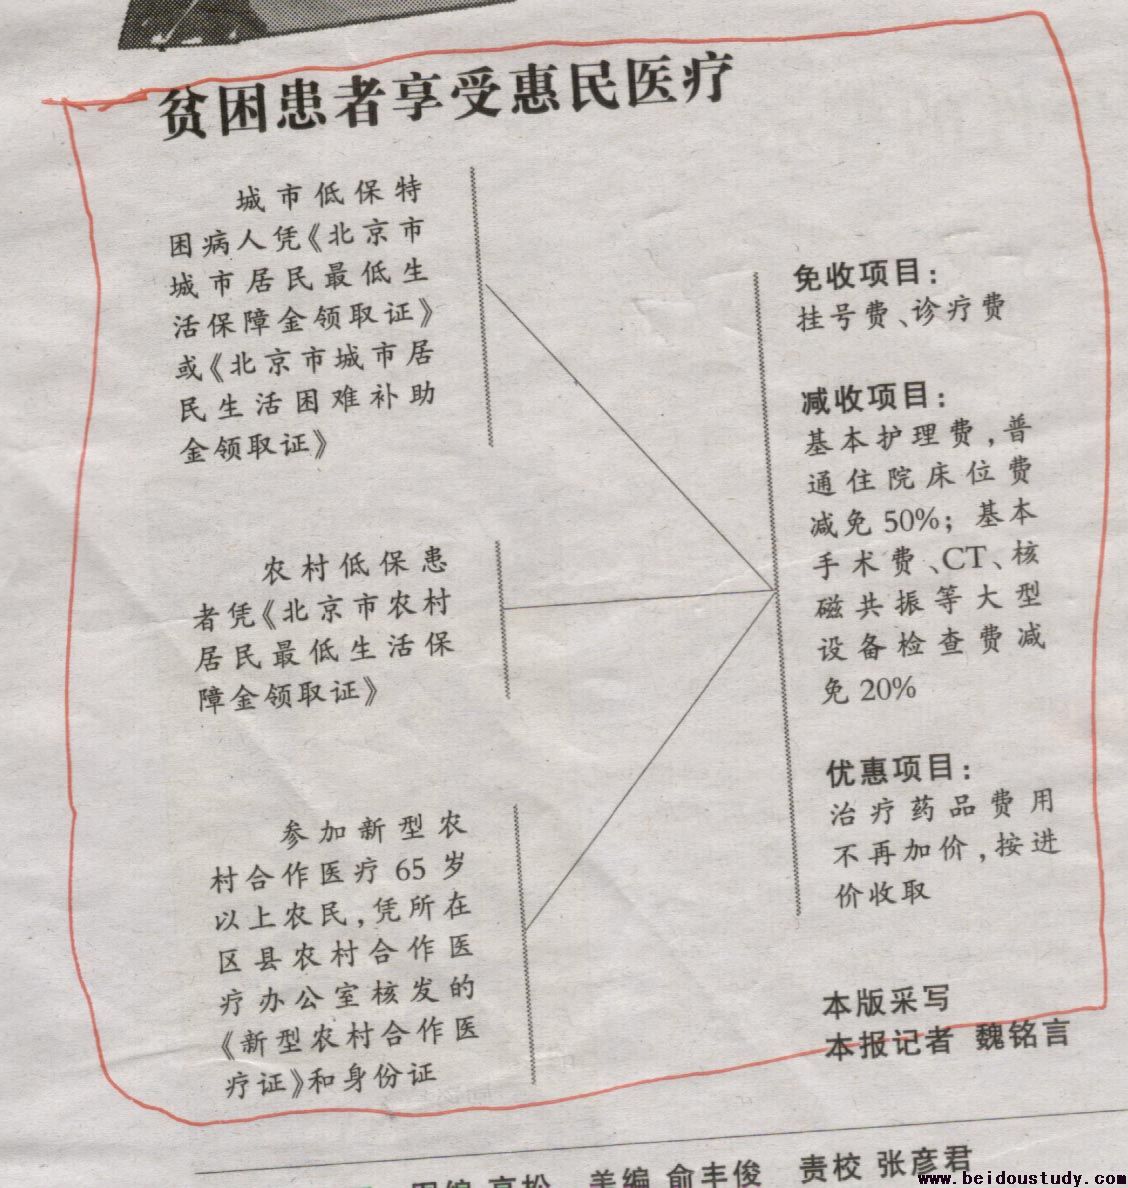 贫困患者享受惠民医疗
城市低保特
困病人凭《北京市
城市居民最低生
活保障金领取证》
或《北京市城市居
民生活困难补助
金领取证》
农村低保患
者凭《北京市农村
居民最低生活保
障金领取证》
参加新型农
村合作医疗 65 岁
以上农民，凭所在
区县农村合作医
疗办公室核发的
《新型农村合作医
疗证》和身份证
免收项目：
挂号费、诊疗费
减收项目：
基本护理费，普
通住院床位费
减免 50%；基本
手术费、CT、核
磁共振等大型
设备检查费减
免 20%
优惠项目：
治疗药品费用
不再加价，按进
价收取
本版采写
本报记者 魏铭言
美编 俞丰俊 责校 张彦君
www.beidoustudy.com